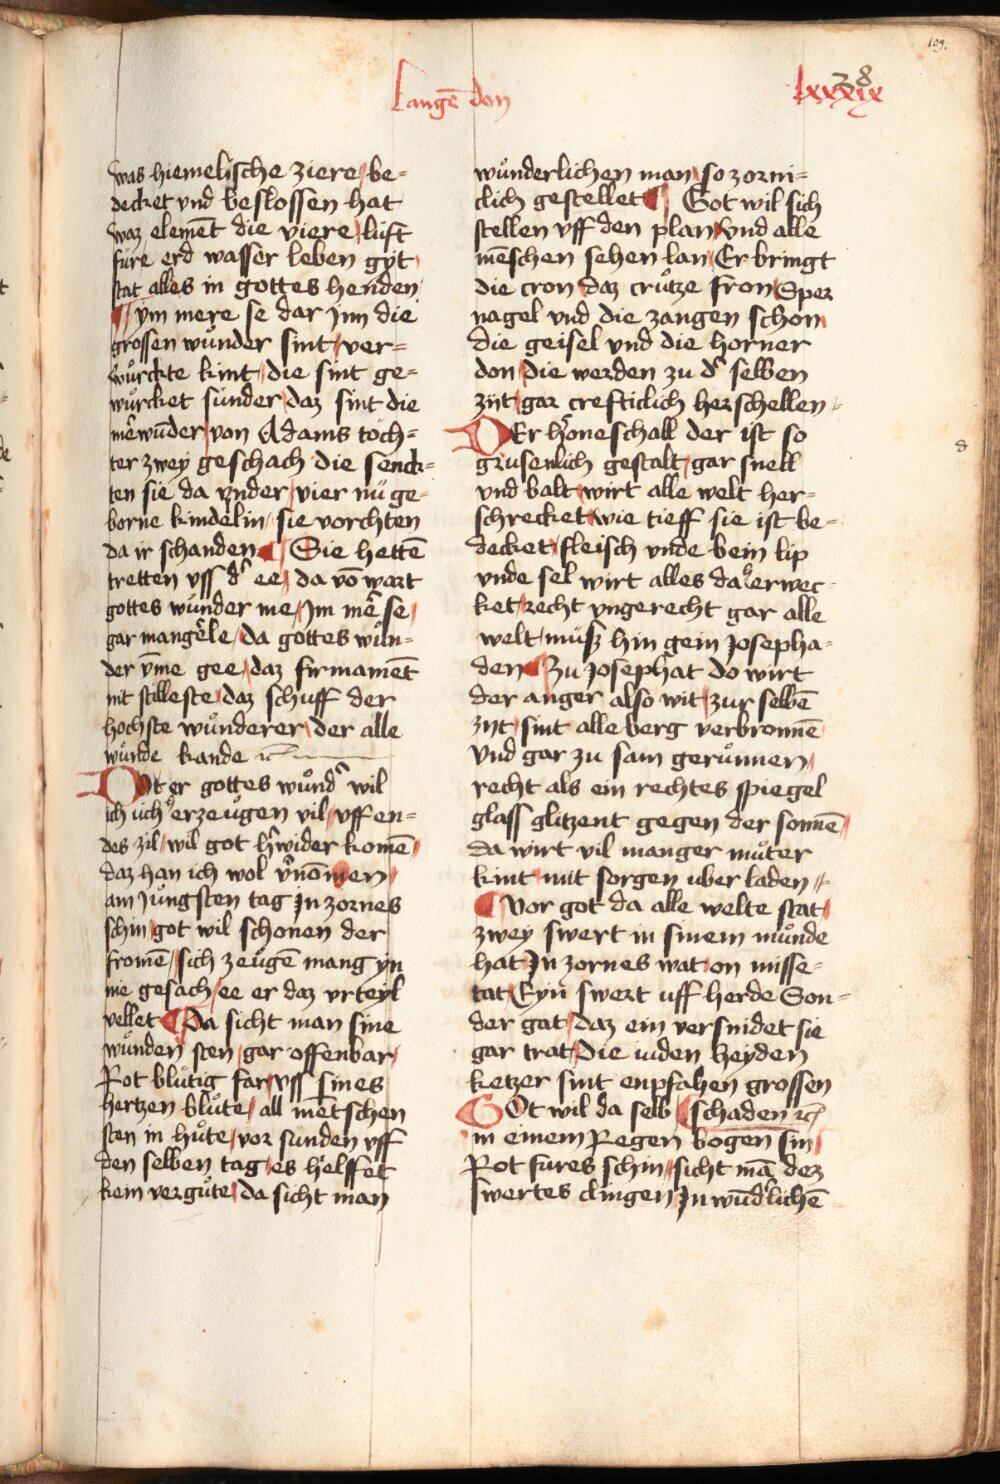 109.
Langē don
lxxxix
38
was hiemelische ziere / be=
decket vnd beslossen hat
waz elemēt die viere / lufft
fure erd wasser leben gyt
stat alles in gottes henden
¶ ym mere se dar Inn die
grossen wůnder sint / ver=
wůrckte kint / die sint ge=
wůrcket sunder / daz sint die
merwūder / von Adams toch=
ter zwey geschach die senck=
ten sie da vnder / vier nü ge=
borne kindelin / sie vorchten
da ir schanden ¶ Sie hettē
tretten vss d' ee / da vō wart
gottes wůnder me / Im me'se /
gar mange'le / da gottes wůn=
der v̄me gee / daz firmamēt
nit stilleste / daz schuff der
hochste wůnderer / der alle
wůnde kande ꝛc
Ot er gottes wůnd' wil
ich üch erzeůgen vil / vff en=
des zil / wil got h'wider komē /
daz han ich wol v'nōmen /
am Jüngsten tag Jn zornes
schin / got wil schonen der
fromē / sich zeugē mang yn
nie gesach / ee er daz vrteyl
vellet ¶ Da sicht man sine
wůnden sten / gar offenbar /
Rot blůtig far / vss sines
hertzen blůte / all mētschen
sten in hůte / vor sunden vff
den selben tag / es helffet
kein vergůte / da sicht man
wůnderlichen man / so zorni=
clich gestellet ¶ Got wil sich
stellen vff den plan / vnd alle
mēschen sehen lan / Er bringt
die cron / daz crůtze fron / Sper
nagel vnd die zangen schon
die geisel vnd die horner
don / die werden zu d' selben
zyt / gar crefticlich herschellen
DEr h'oneschall der ist so
grusenlich gestalt / gar snell
vnd balt / wirt alle welt her=
schrecket / wie tieff sie ist be=
decket / fleisch vnde bein lip
vnde sel wirt alles da erwec=
ket / recht vngerecht gar alle
welt / můsz hin gein Josepha=
den ¶ Zu Josephat do wirt
der anger also wit / zur selbē
zyt / sint alle berg verbronnē
vnd gar zu sam gerůnnen /
recht als ein rechtes spiegel
glass glitzent gegen der sonnē /
da wirt vil manger můter
kint / mit sorgen uber laden
¶ Vor got da alle welte stat
zwey swert in sinem můnde
hat / Jn zornes wat / on misse=
tat / Eyn swert uff herde Son=
der gat / daz ein versnidet sie
gar trat / Die iuden heyden
ketzer sint enpfahen grossen
GOt wil da selb ¶ schaden ꝛc
in einem Regen bogen sin /
Rot fures schin / sicht mā dez
swertes clingen Jn wūd'lichē